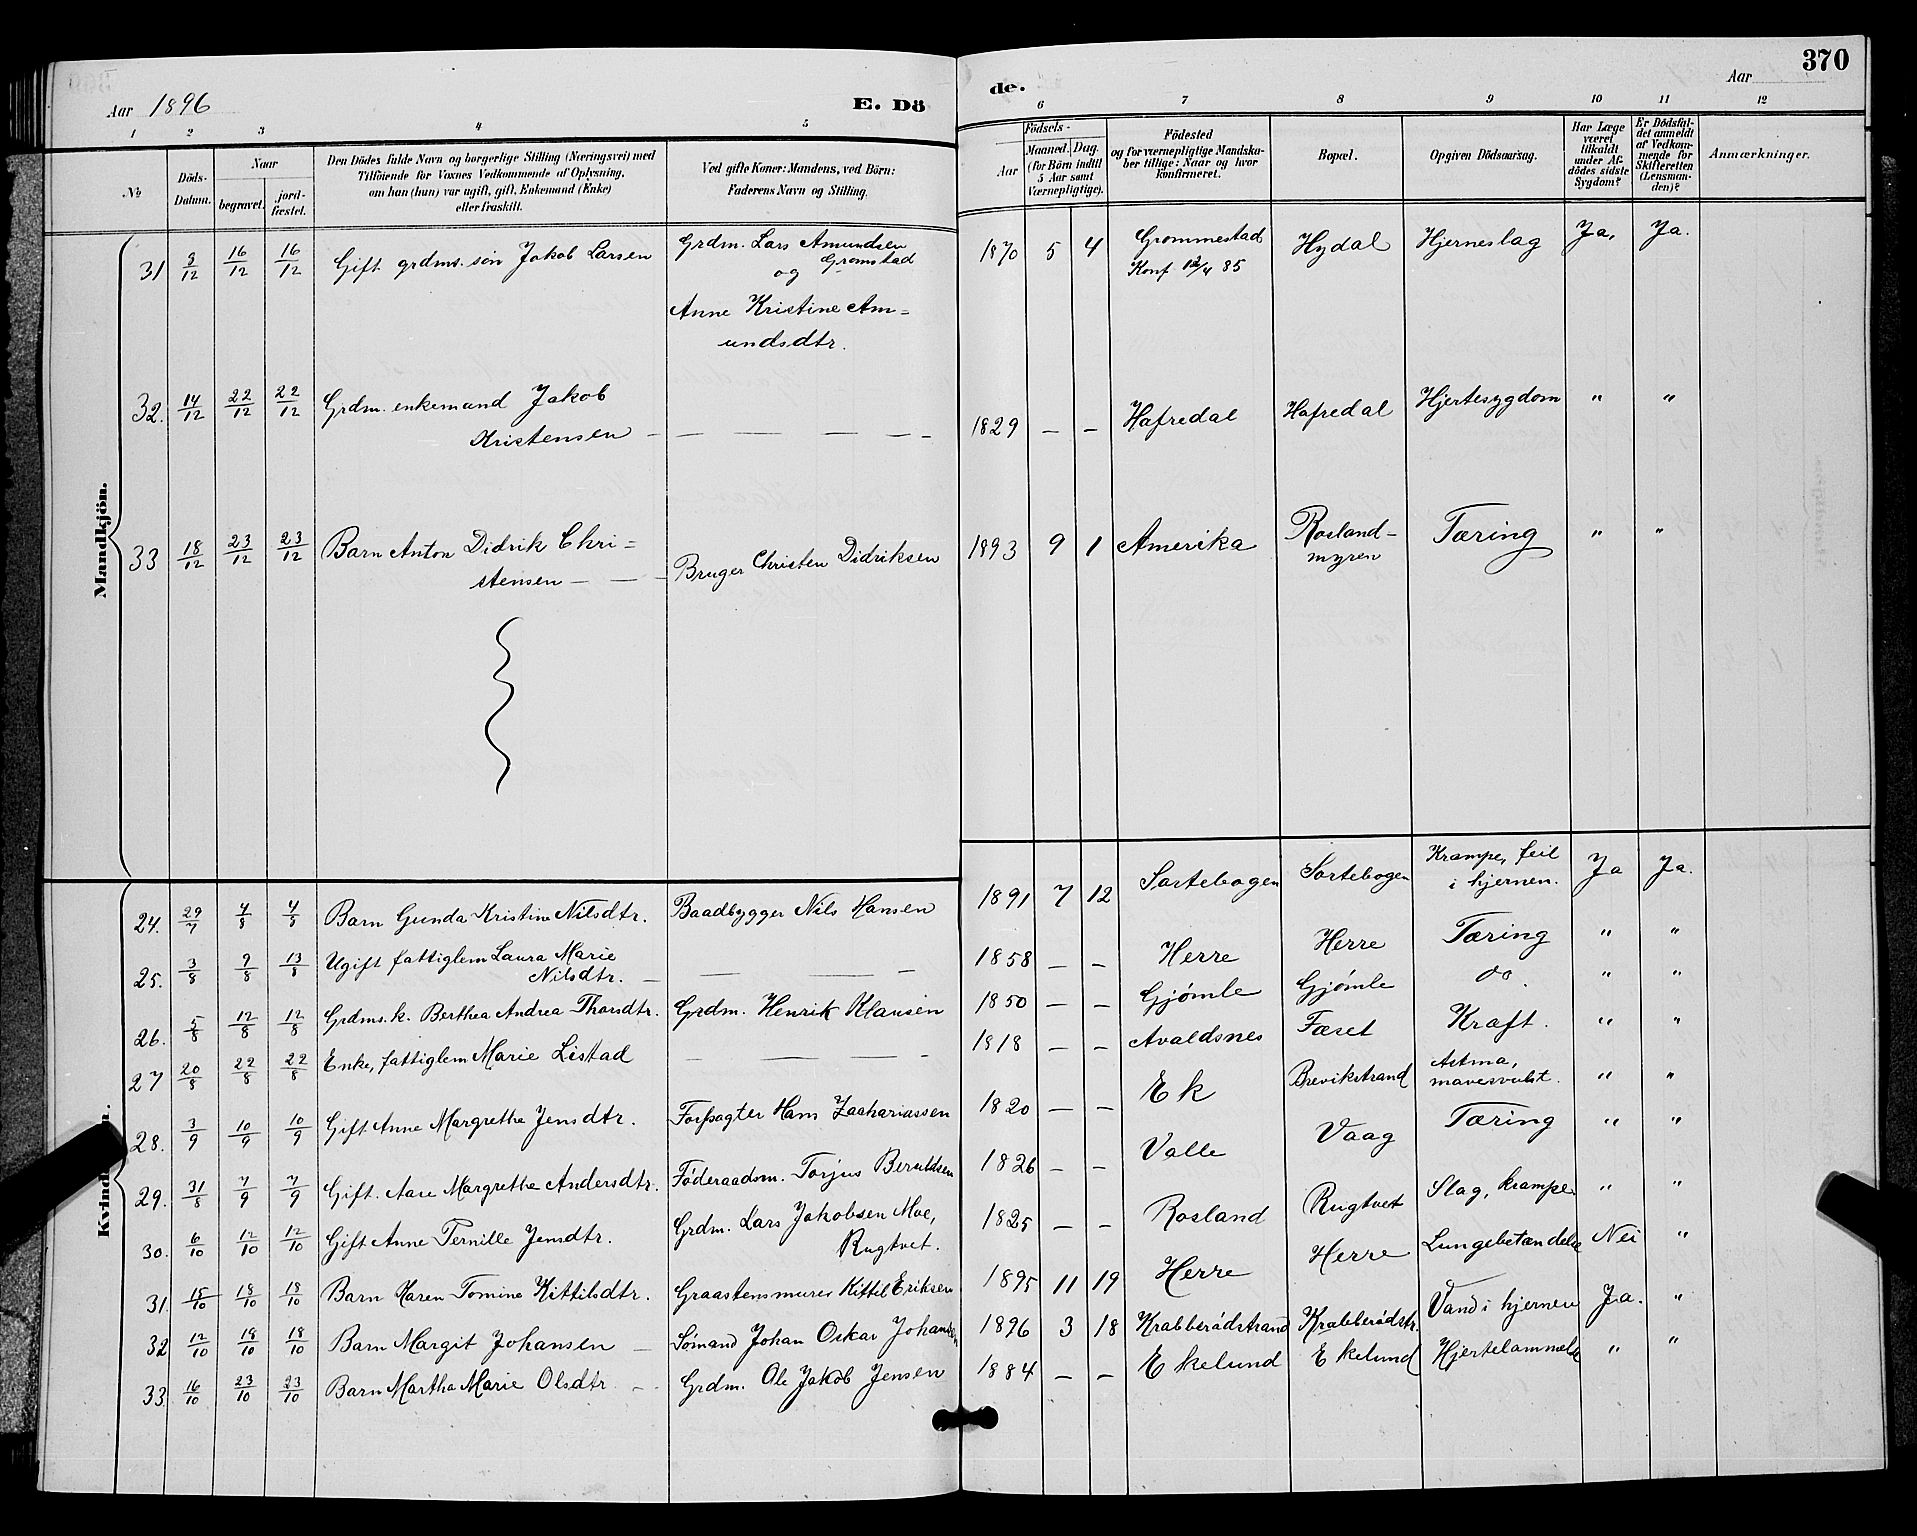 370
Aar 1896 E. Dö
de. Aar
1 2 3 4 5
6 7 8 9 10 11 12
No
Döds-
Datum.
Naar
begravet.
jord-
fæstet.
Den Dödes fulde Navn og borgerlige Stilling (Næringsvei) med
Tilföiende för Voxnes Vedkommende af Oplysning,
om han (hun) var ugift, gift, Enkemand (Enke)
eller fraskilt.
Ved gifte Koner: Mandens, ved Börn:
Faderens Navn og Stilling.
Födsels-
Aar
Maaned. Dag.
(for Börn indtil
5 Aar samt
Værnepligtige).
Födested
og for værnepligtige Mandska-
ber tillige: Naar og hvor
konfirmeret.
Bopæl.
Opgiven Dödsaarsag.
Har Læge
været
tilkaldt
under Af-
dödes sidste
Sygdom?
Er Dödsfal-
det anmeldt
af Vedkom-
mende for
Skifteretten
(Lensman-
den)?
Anmærkninger.
Mandkjön.
31 3/12 16/12 16/12 Gift grdms. søn Jakob Larsen Grdm. Lars Amundsen 1870 5 4 Grommestad Hydal Hjerneslag Ja, Ja.
Gromstad
og
Konf 12/4 85
Anne Kristine Am=
undsdtr.
32. 14/12 22/12 22/12 Grdm. enkemand Jakob 1829 — — Hafredal Hafredal Hjertesygdom " "
Kristensen — — — — — —
33 18/12 23/12 23/12 Barn Anton Didrik Chri= Bruger Christen Didriksen 1893 9 1 Amerika Rosland- Tæring " "
stensen — — —
myren
Kvindekjön.
24. 29/7 4/8 4/8 Barn Gunda Kristine Nilsdtr. Baadbygger Nils Hansen 1891 7 12 Sortebogen Sortebogen Krampe, feil Ja Ja.
i hjernen.
25. 3/8 9/8 13/8 Ugift fattiglem Laura Marie — — — 1858 — — Herre Herre Tæring " "
Nilsdtr. —
26. 5/8 12/8 12/8 Grdms. k. Berthea Andrea Thorsdtr. Grdm. Henrik Klausen 1850 — — Gjömle Gjömle do. " "
27 20/8 22/8 22/8 Enke, fattiglem Marie Listad — — — — 1818 — — Avaldsnes Fæset Kraft. " "
28. 3/9 10/9 10/9 Gift Anne Margrethe Jensdtr. Forpagter Hans Zachariassen 1820 — — Ek Brevikstrand Astma,
mavesvulst. " "
29. 31/8 7/9 7/9 Gift. Aase Margrethe Andersdtr. Föderaadsm. Torjus Beruldsen 1826 — — Valle Vaag Tæring " "
30. 6/10 12/10 12/10 Gift Anne Pernille Jensdtr. Grdm. Lars Jakobsen Moe, 1825 — — Rosland Rugtvet Slag, krampe. " "
Rugtvet.
31. 15/10 18/10 18/10 Barn Karen Tomine Kittilsdtr. Graastensmurer Kittil Eriksen 1895 11 19 Herre Herre Lungebetændelse Nei "
32 12/10 18/10 18/10 Barn Margit Johansen — Sömand Johan Oskar Johansen 1896 3 18 Krabberödstrand Krabberödstr. Vand i hjernen Ja. "
33. 16/10 23/10 23/10 Barn Martha Marie Olsdtr. — Grdm. Ole Jakob Jensen 1884 — — Ekelund Ekelund Hjertelammelse " "